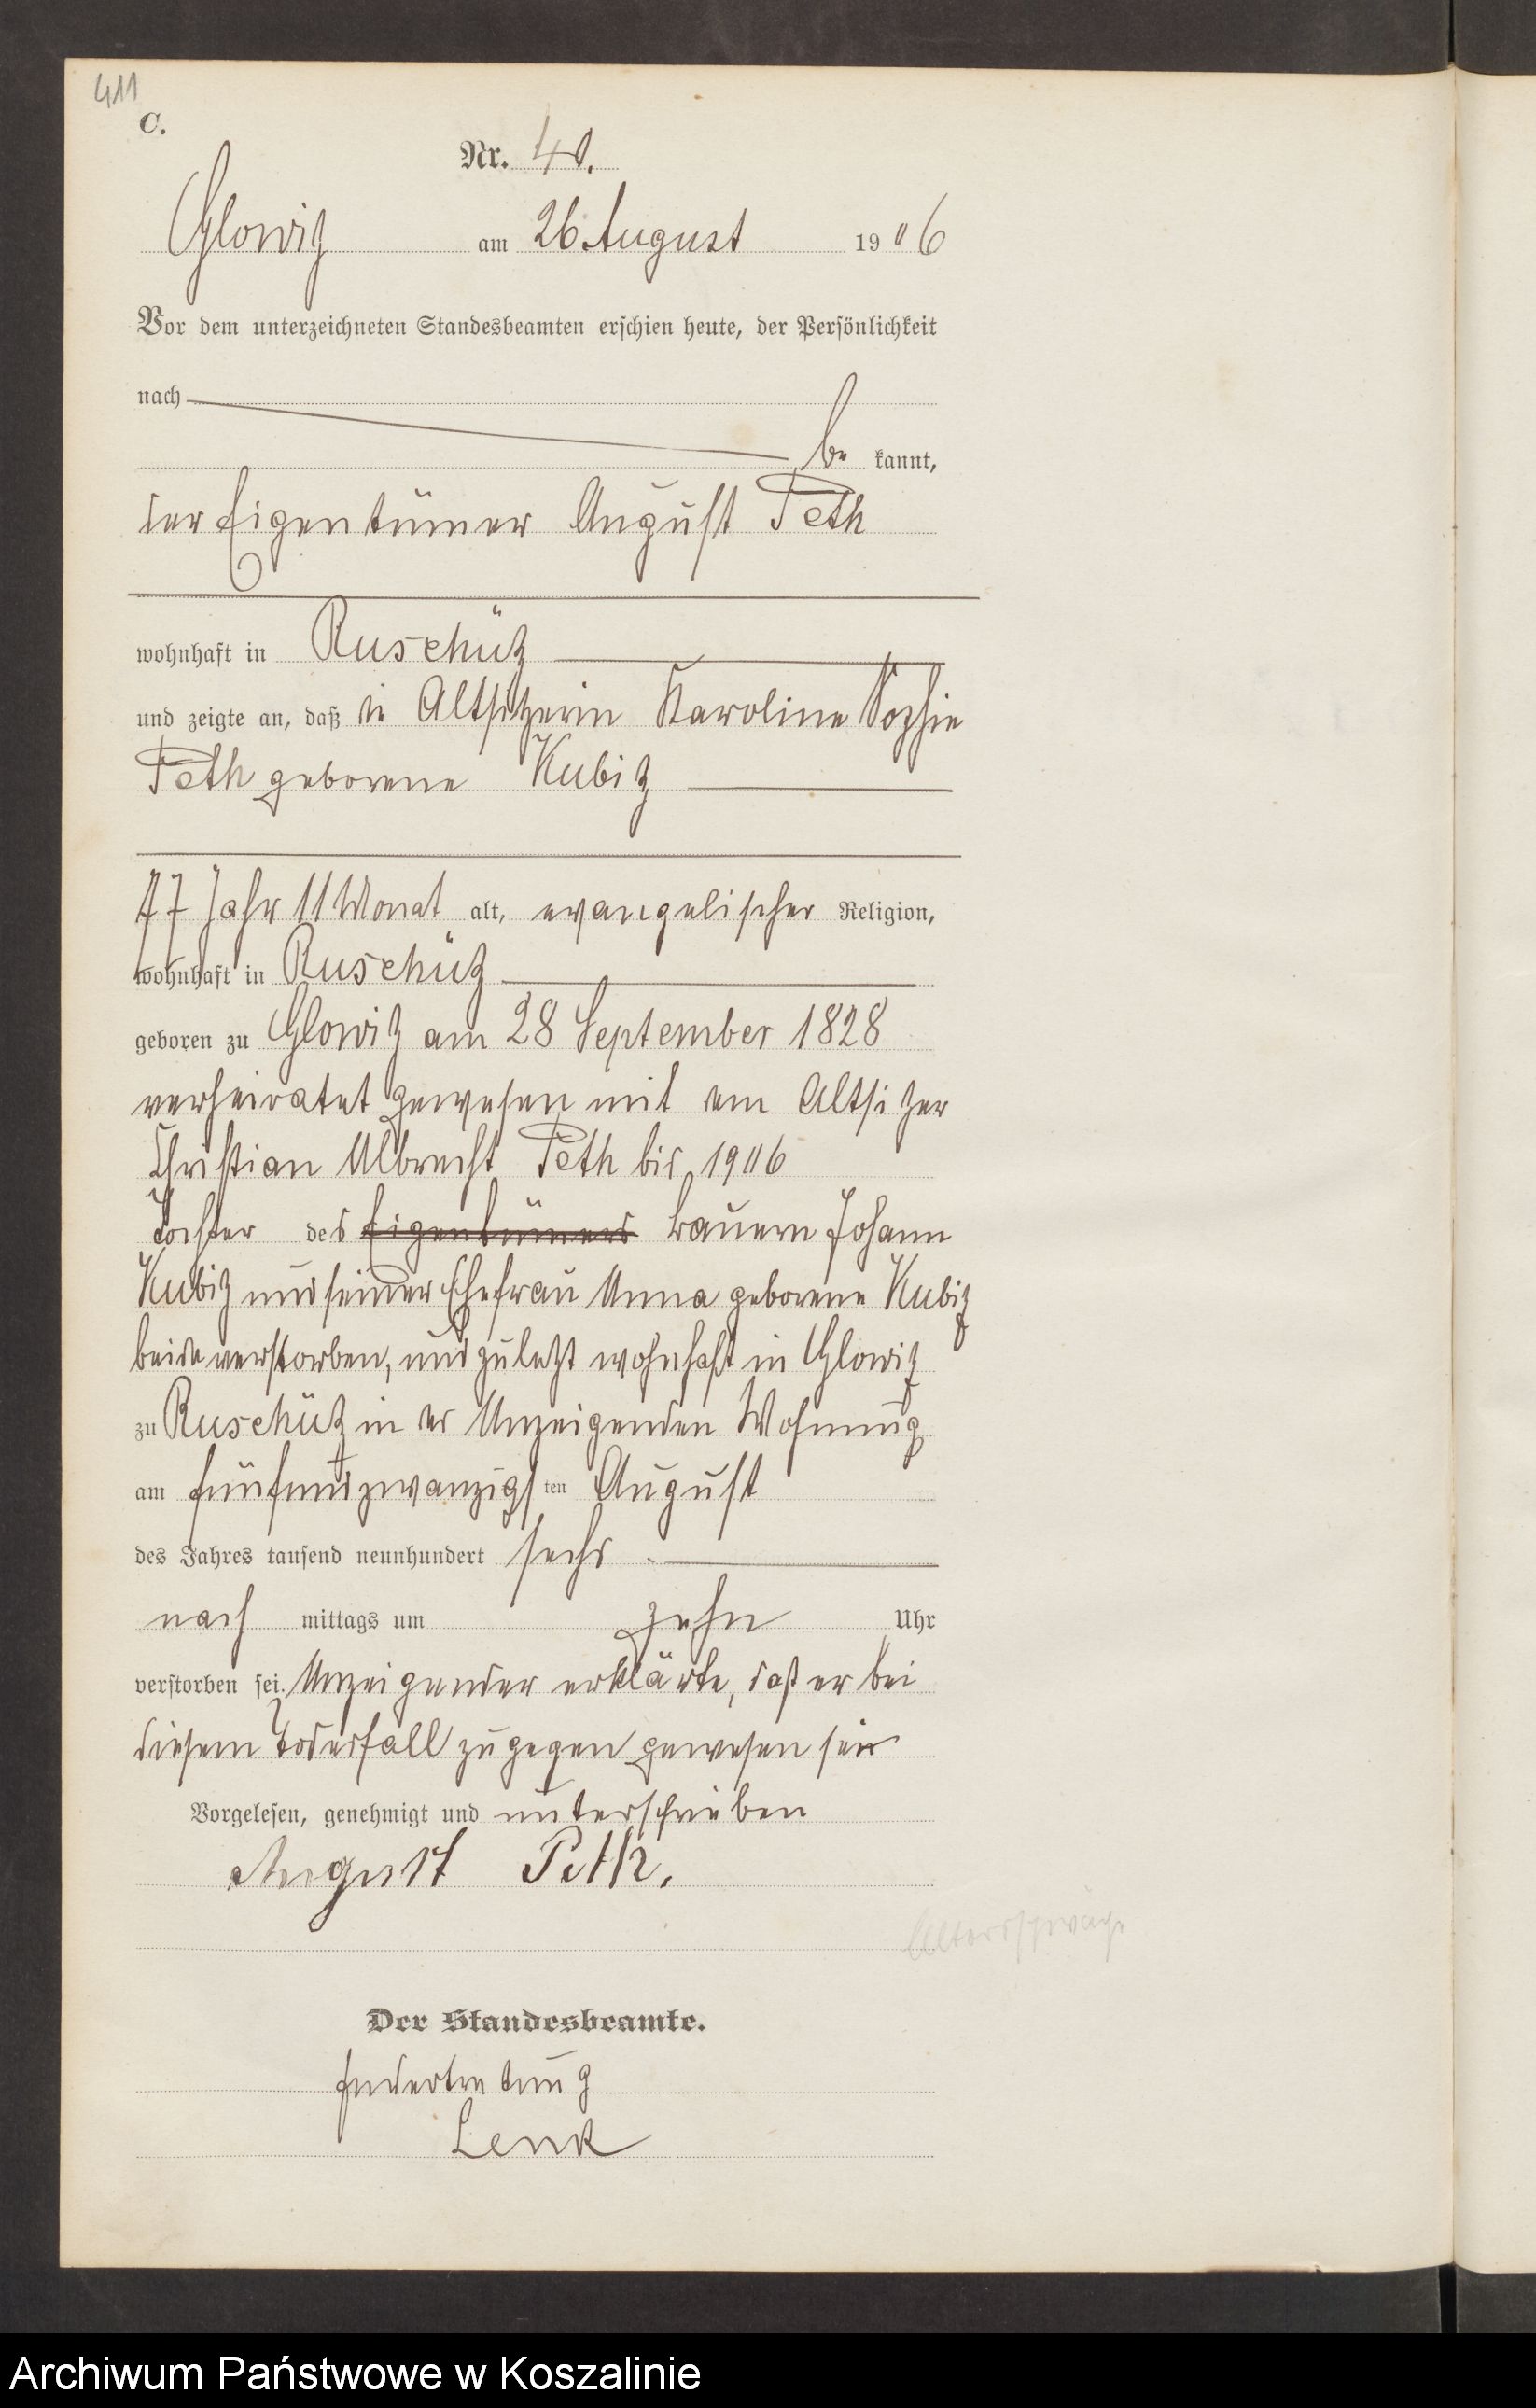 411
C.
Nr. 40.
Glowitz am 26 August 1906
Vor dem unterzeichneten Standesbeamten erschien heute, der Persönlichkeit
nach
be kannt,
der Eigentümer August Peth
wohnhaft in Ruschütz
und zeigte an, daß die Altsitzerin Karoline Sophie
Peth geborene Kubitz
77 Jahr 11 Monat alt, evangelischer Religion,
wohnhaft in Ruschütz
geboren zu Glowitz am 28 September 1828
verheiratet gewesen mit dem Altsitzer
Christian Albrecht Peth bis 1906
Tochter des Eigentümers Bauern Johann
Kubitz und seiner Ehefrau Anna geborene Kubitz
beide verstorben, und zuletzt wohnhaft in Glowitz
zu Ruschütz in des Anzeigenden Wohnung
am fünfundzwanzigsten August
des Jahres tausend neunhundert sechs
nach mittags um zehn Uhr
verstorben sei. Anzeigender erklärte, daß er bei
diesem Todesfall zugegen gewesen sei
Vorgelesen, genehmigt und unterschrieben
August Peth.
Der Standesbeamte.
Lenk
Archiwum Państwowe w Koszalinie